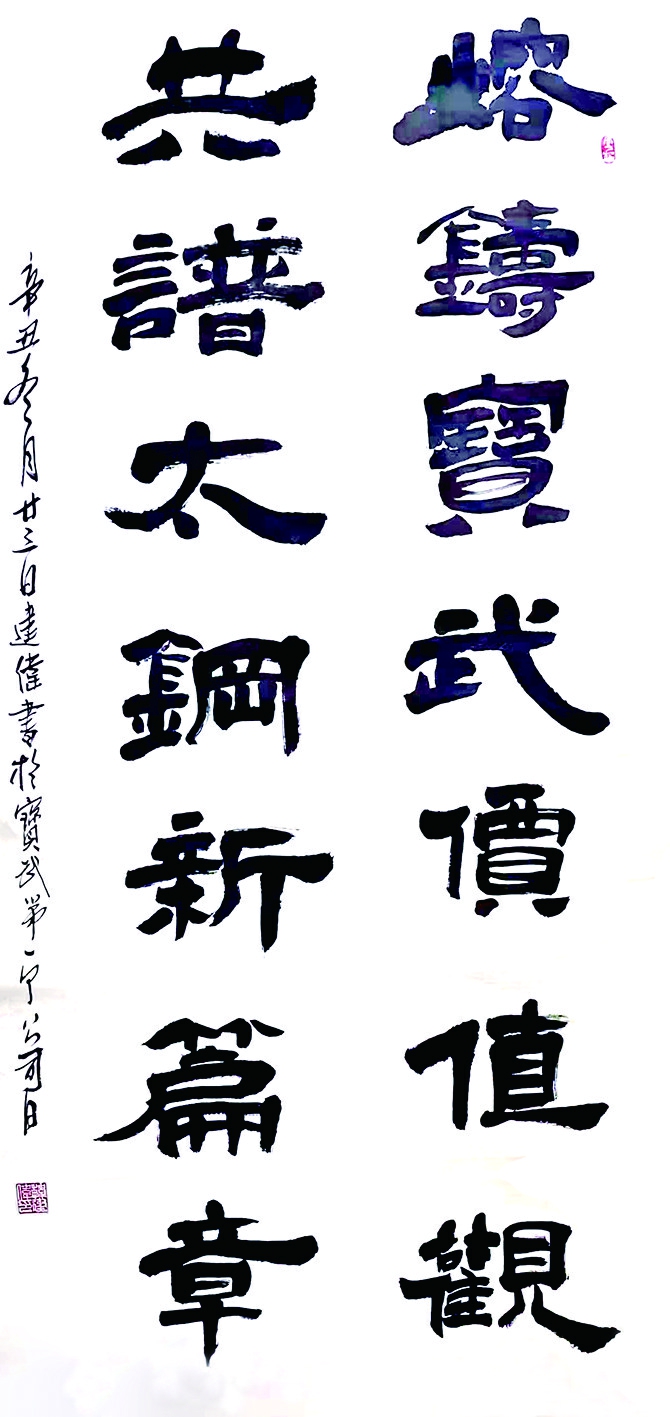 熔鑄寶武價值觀
共譜太鋼新篇章
辛丑冬月廿三日建偉書於寶武第一个公司日